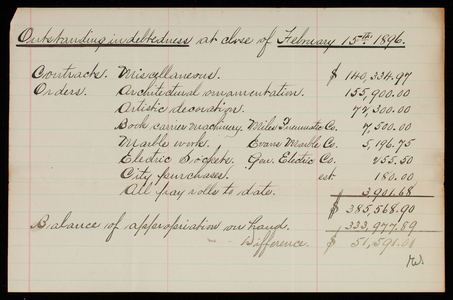 Outstanding indebtedness at close of February 15th 1896.
Contracts. Miscellaneous. $ 140,334.97
Orders. Architectural ornamentation. 155,900.00
Artistic decoration. 72,300.00
Book carrier machinery, Miles Pneumatic Co. 7,500.00
Marble work. Evans Marble Co. 5,196.75
Electric Sockets. Gen. Electric Co. 255.50
City purchases. est 180.00
All pay rolls to date. 3,901.68
$ 385,568.90
Balance of appropriation on hand. 333,977.89
Difference. $ 51,591.01